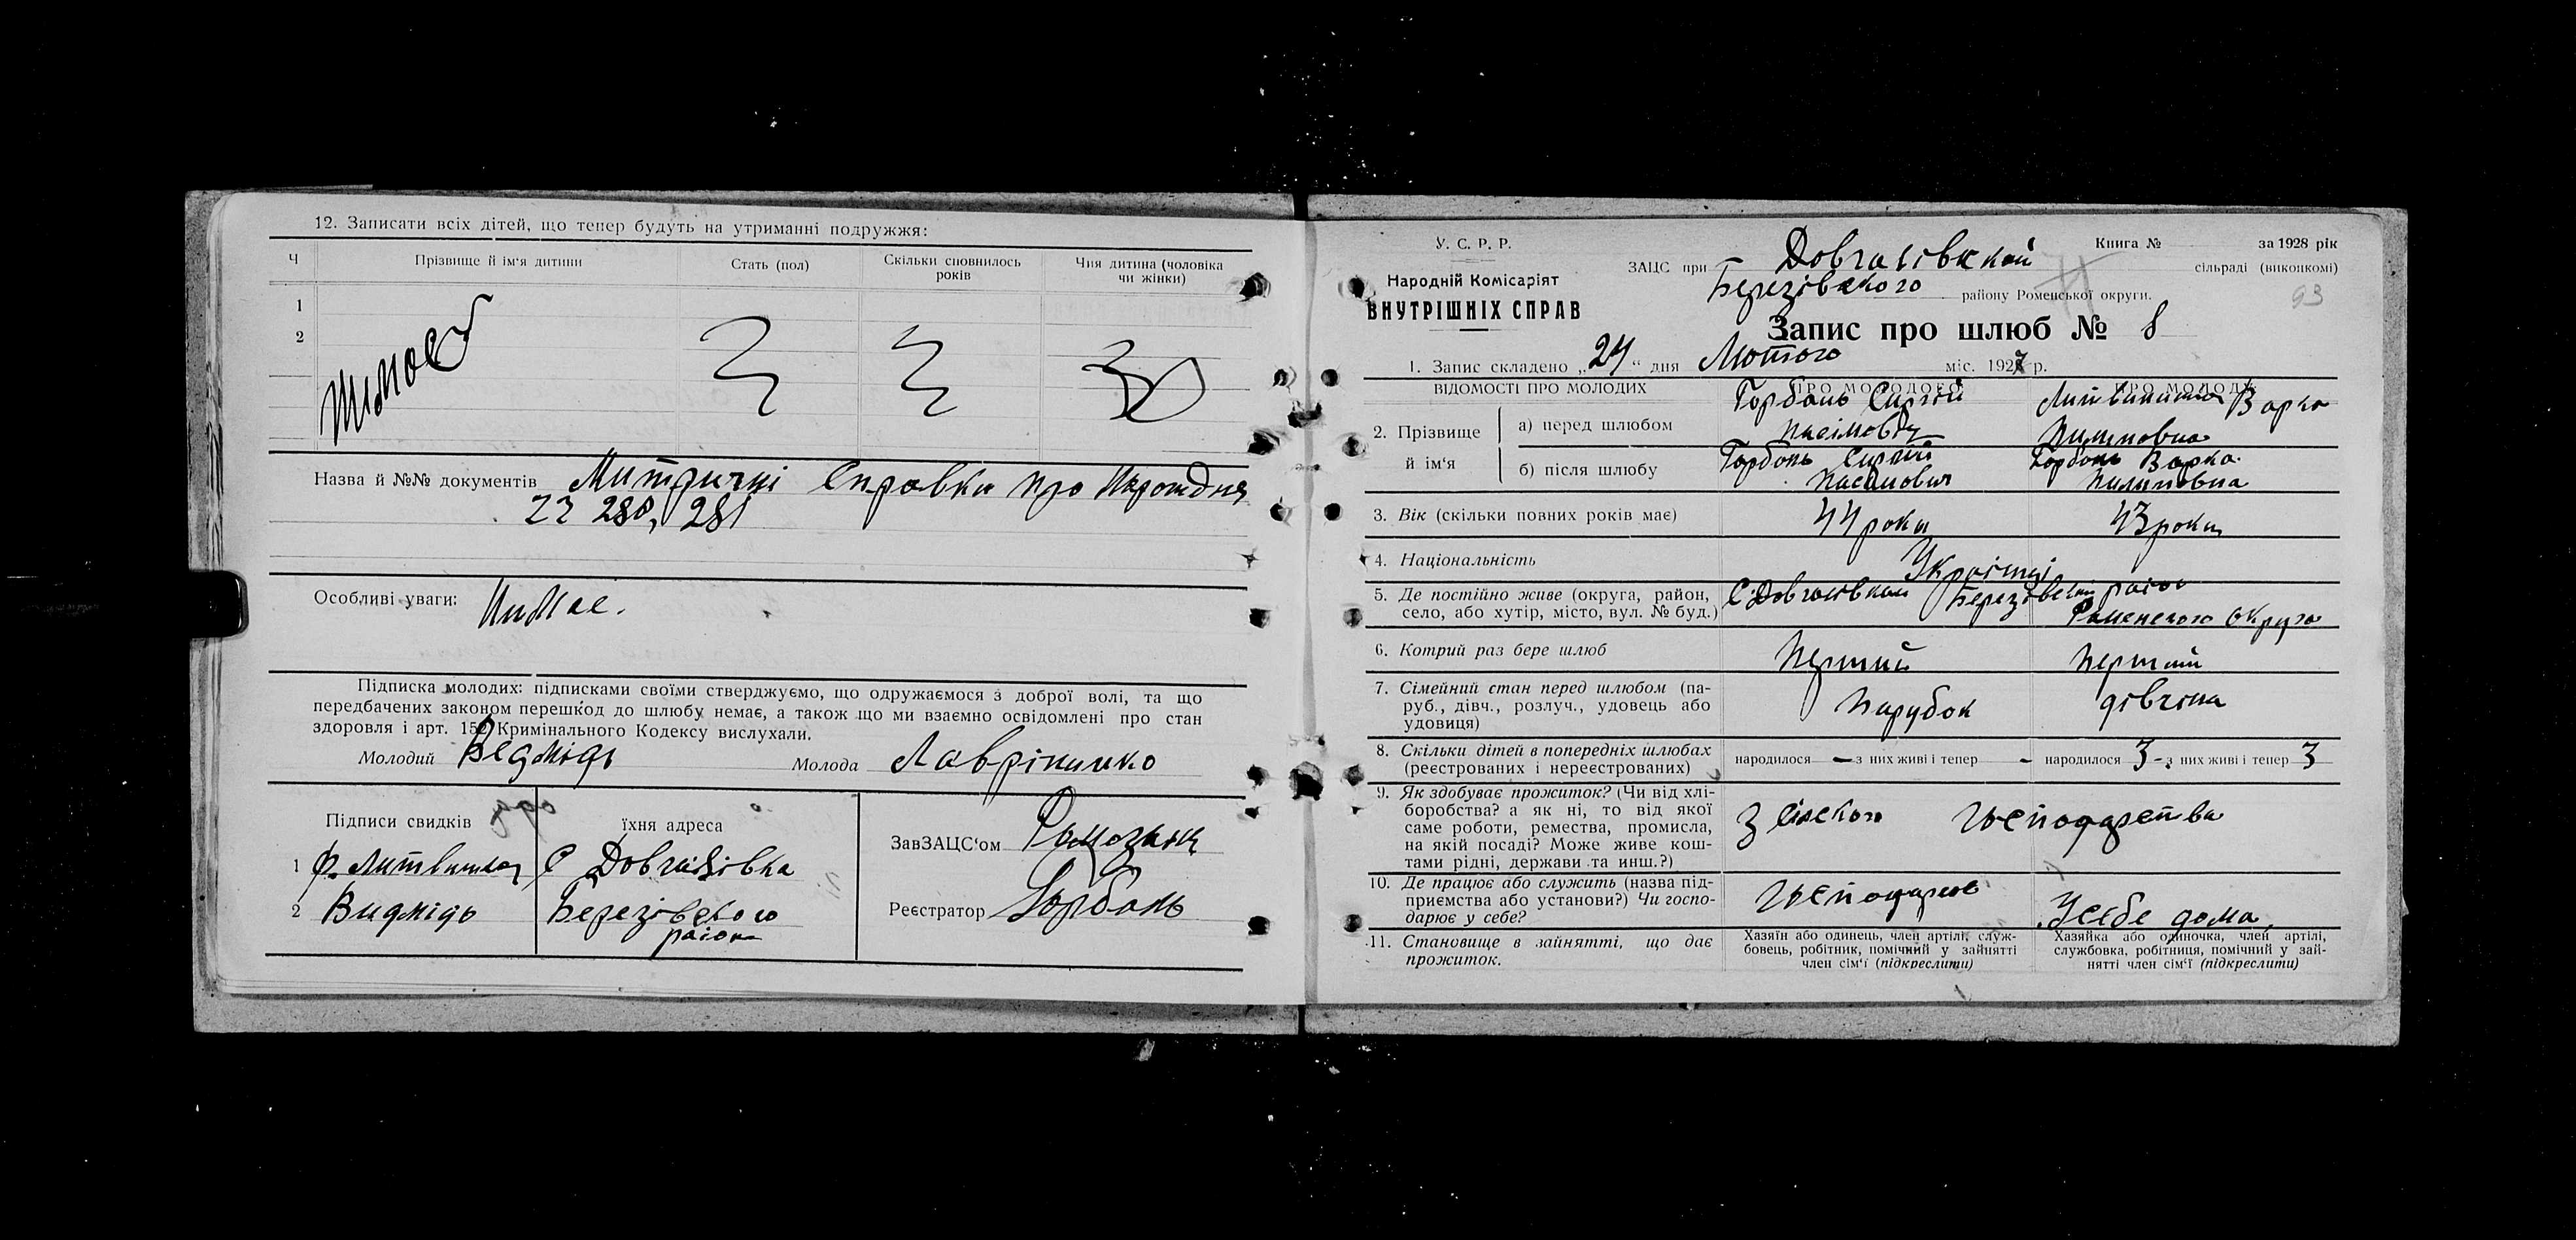 12. Записати всіх дітей, що тепер будуть на утриманні подружжя:
Ч Прізвище й ім'я дитини Стать (пол) Скільки сповнилось років Чия дитина (чоловіка чи жінки)
1
2
Назва й №№ документів Митричні Справки про Народдня
280, 281
Особливі уваги: Нимає.
Підписка молодих: підписками своїми стверджуємо, що одружаємося з доброї волі, та що
передбачених законом перешкод до шлюбу немає, а також що ми взаємно освідомлені про стан
здоровля і арт. 152 Кримінального Кодексу вислухали.
Молодий Ведмідь Молода Лаврінинко
Підписи свидків їхня адреса
1 Ф. Литвинка С Довгалівка
2 Видмідь Березівского
района
ЗавЗАЦС'ом
Реєстратор Горбань
У. С. Р. Р.
Народній Комісаріят
ВНУТРІШНІХ СПРАВ
Книга № за 1928 рік
ЗАЦС при Довгалівской сільраді (виконкомі)
Березівского району Роменської округи.
93
Запис про шлюб № 8
1. Запис складено „24" дня Лютого міс. 1927 р.
ВІДОМОСТІ ПРО МОЛОДИХ ПРО МОЛОДОГО ПРО МОЛОДУ
2. Прізвище й ім'я
а) перед шлюбом Горбань Сиргій Варка
Пилиповна
б) після шлюбу Горбань Сиргій Горбань Варка
Пилиповна
3. Вік (скільки повних років має) 44 роки 43 роки
4. Національність Українці
5. Де постійно живе (округа, район,
село, або хутір, місто, вул. № буд.) С. Довгалівкаи Березівский район
Роменского округа
6. Котрий раз бере шлюб Перший Перший
7. Сімейний стан перед шлюбом (па-
руб., дівч., розлуч., удовець або
удовиця) Парубок дівчина
8. Скільки дітей в попередніх шлюбах
(реєстрованих і нереєстрованих) народилося — з них живі і тепер - народилося 3 - з них живі і тепер 3
9. Як здобуває прожиток? (Чи від хлі-
боробства? а як ні, то від якої
саме роботи, ремества, промисла,
на якій посаді? Може живе кош-
тами рідні, держави та инш.?) З сілского господарства
10. Де працює або служить (назва під-
приємства або установи?) Чи госпо-
дарює у себе? Усебе дома
11. Становище в зайнятті, що дає
прожиток.
Хазяїн або одинець, член артілі, служ-
бовець, робітник, помічний у зайнятті
член сім'ї (підкреслити)
Хазяйка або одиночка, член артілі,
службовка, робітниця, помічний у зай-
нятті член сім'ї (підкреслити)